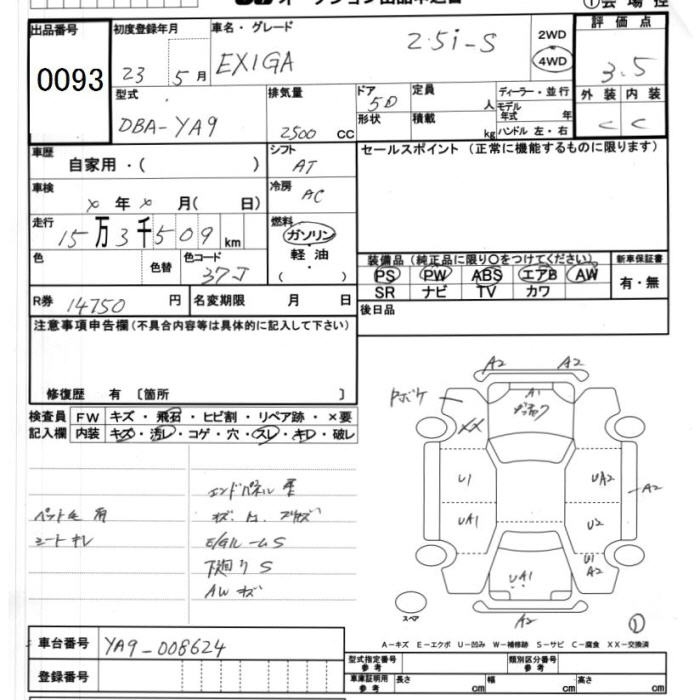 オークション出品申込書
① 会場控
出品番号 0093
初度登録年月 23 5月
車名・グレード EXIGA 2.5i-S
2WD
4WD
評価点 3.5
外装 内装
C C
型式 DBA-YA9
排気量 2500 CC
ドア 5D
形状
定員 人
積載 kg
ディーラー・並行
モデル年式 年
ハンドル 左・右
車歴 自家用・( )
シフト AT
車検 × 年 × 月( 日)
冷房 AC
走行 15万3千509 km
燃料 ガソリン
軽油
( )
色
色替
色コード 37J
R券 14750 円
名変期限 月 日
セールスポイント(正常に機能するものに限ります)
装備品(純正品に限り○をつけてください。)
PS PW ABS エアB AW
SR ナビ TV カワ
新車保証書
有・無
後日品
注意事項申告欄(不具合内容等は具体的に記入して下さい)
修復歴 有 〔箇所 〕
検査員記入欄
FW キズ・飛石・ヒビ割・リペア跡・×要
内装 キズ・汚レ・コゲ・穴・スレ・キレ・破レ
ペット毛 有
シートキレ
エンドパネル
E/Gルーム S
下廻り S
AW キズ
A2 A2
Pボケ
A1
XX
U1
UA1
UA2
A2
U2
U1
A2
UA1
A2
スペア
①
A-キズ E-エクボ U-凹み W-補修跡 S-サビ C-腐食 XX-交換済
車台番号 YA9-008624
登録番号
型式指定番号 参考
類別区分番号 参考
車庫証明用 参考 長さ cm 幅 cm 高さ cm